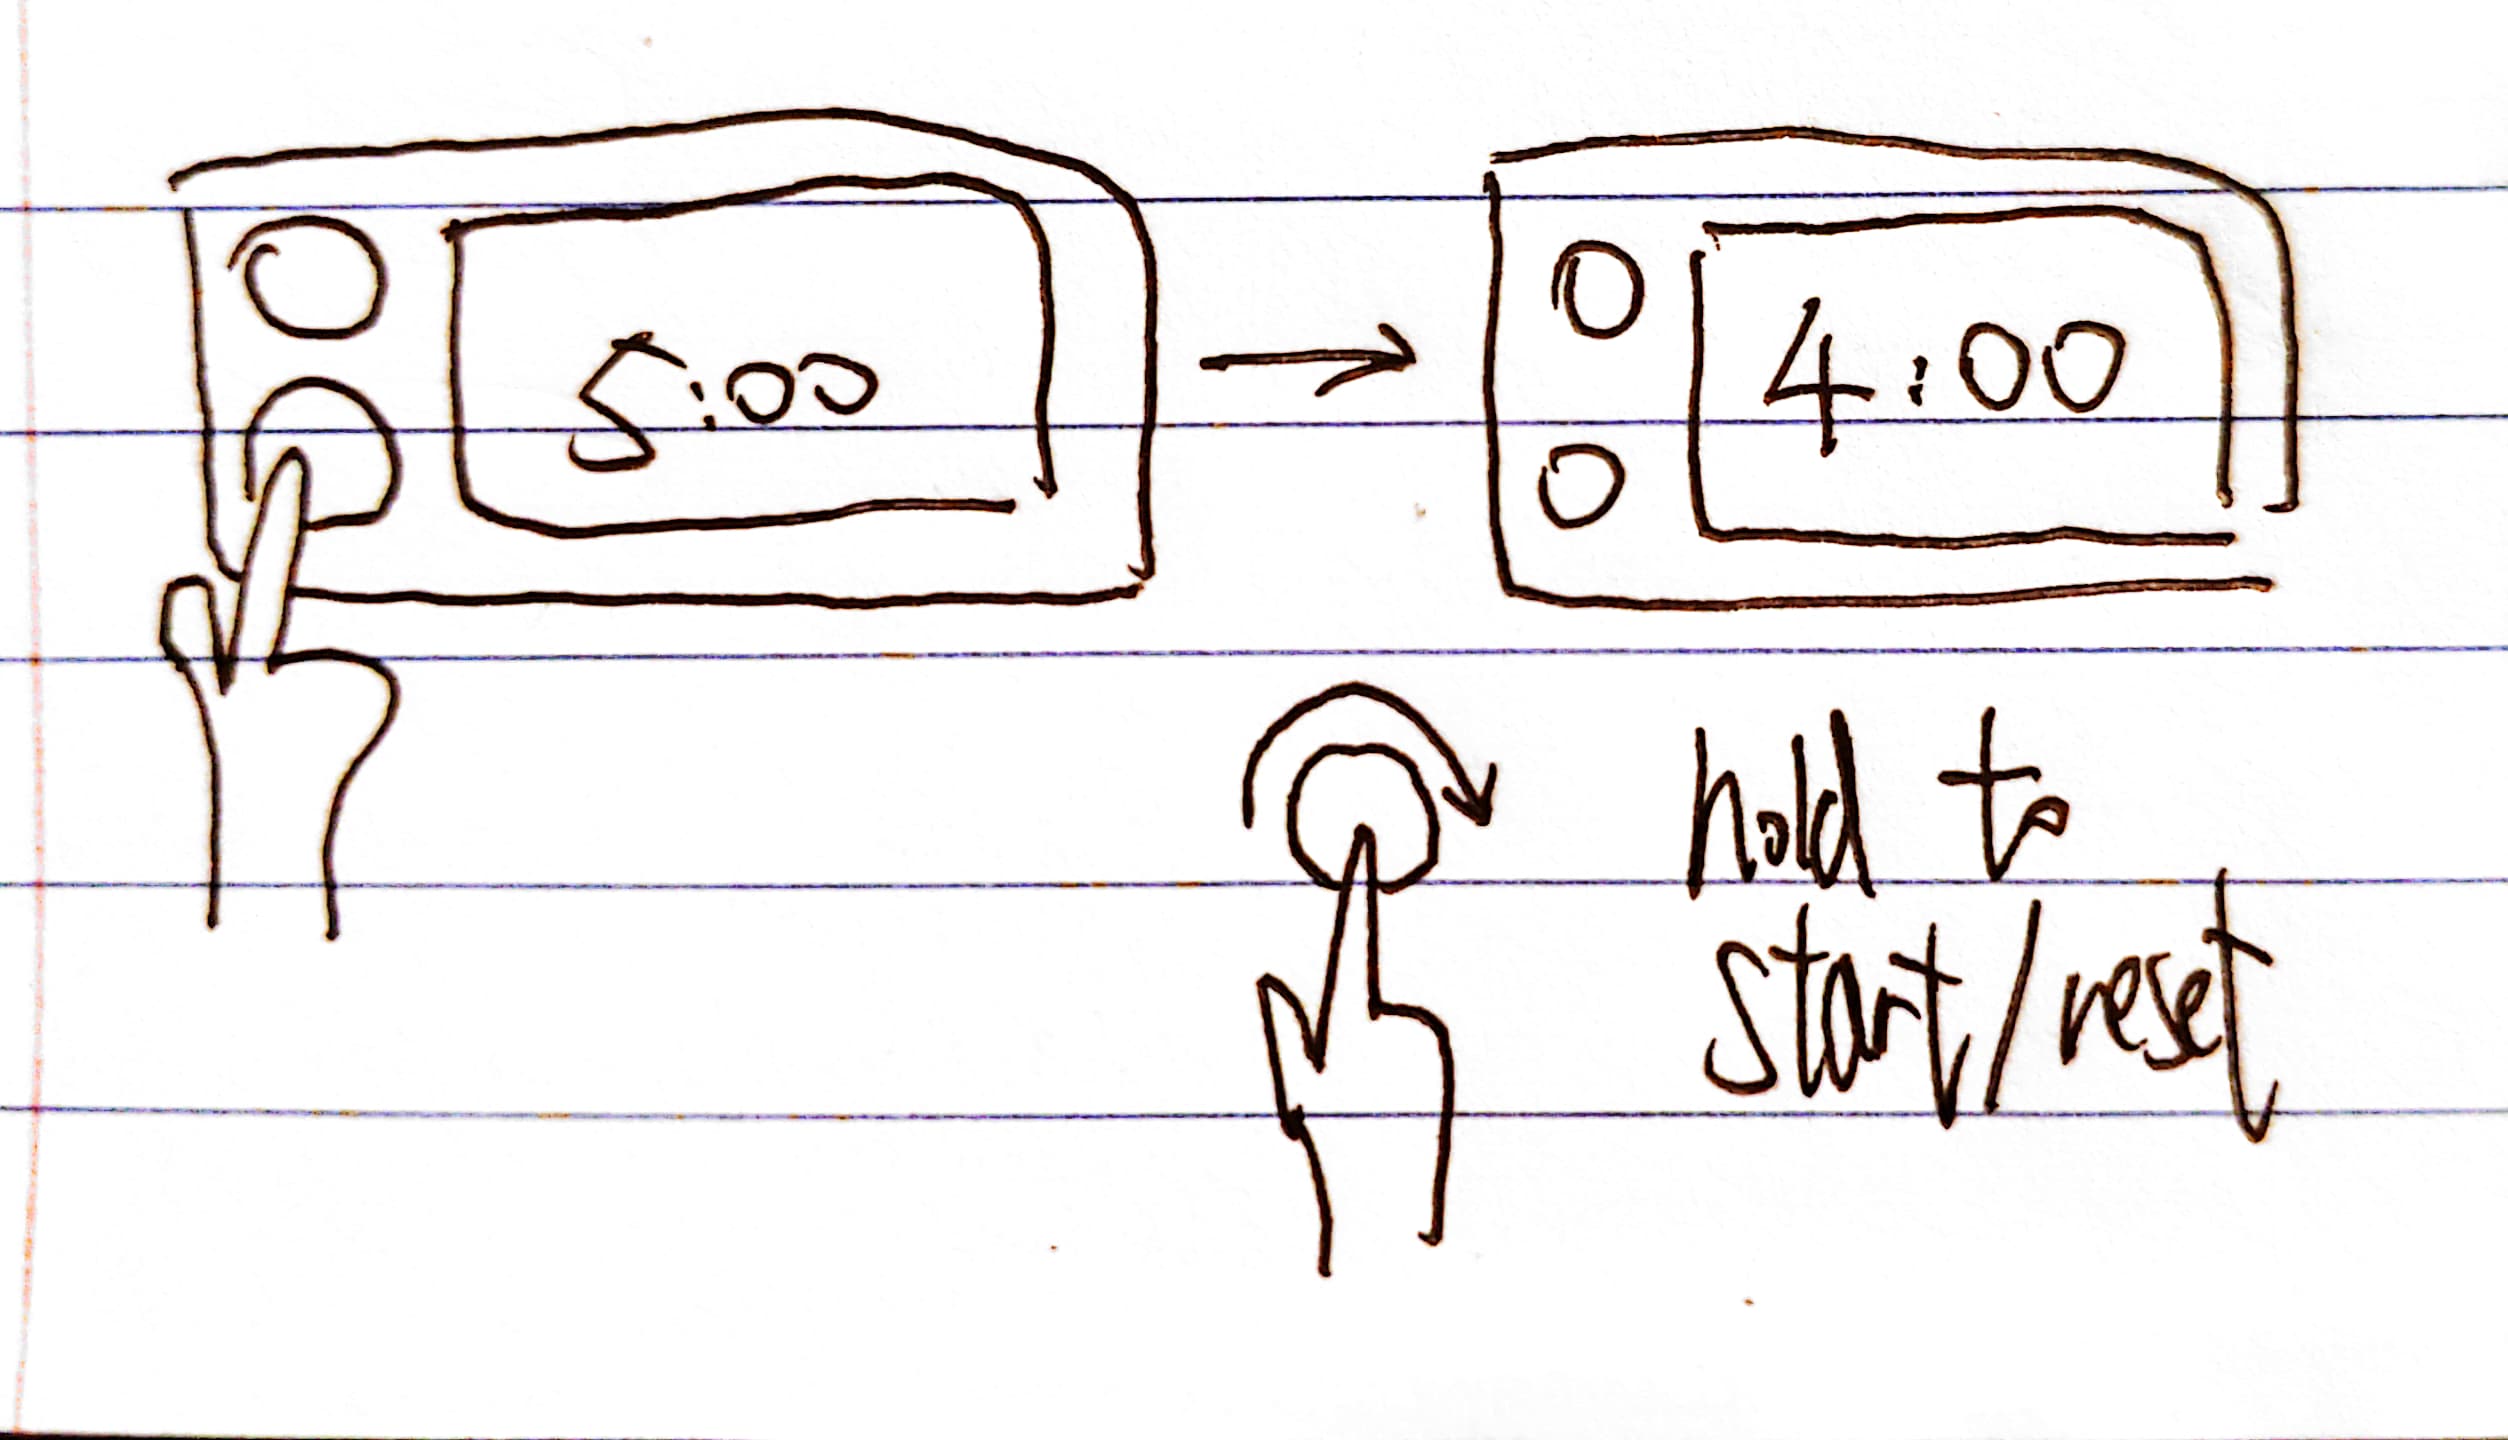 5:00
4:00
hold to
start/reset